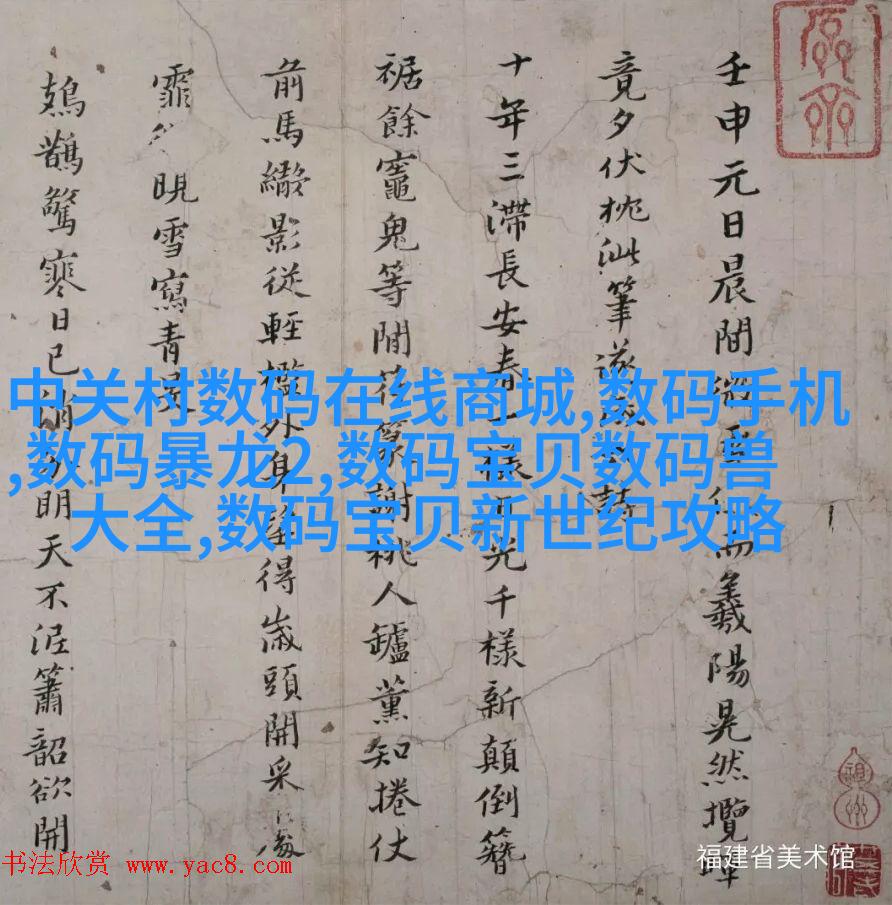 壬申元日晨間微雪作而羲陽晃然攬
竟夕伏枕泚筆遂
十年三滯長安春一樣光千樣新顛倒簪
裾餘竈鬼等閒花
謝桃人鑪薰知捲仗
前馬繼影從輕檻外身
得歲頭開采
霏
晛雪寫青旻
鵁鶄驚寒日已
明天不泥簫韶欲開
中关村数码在线商城,数码手机
,数码暴龙2,数码宝贝数码兽
大全,数码宝贝新世纪攻略
书法欣赏 www.yac8.com
福建省美术馆